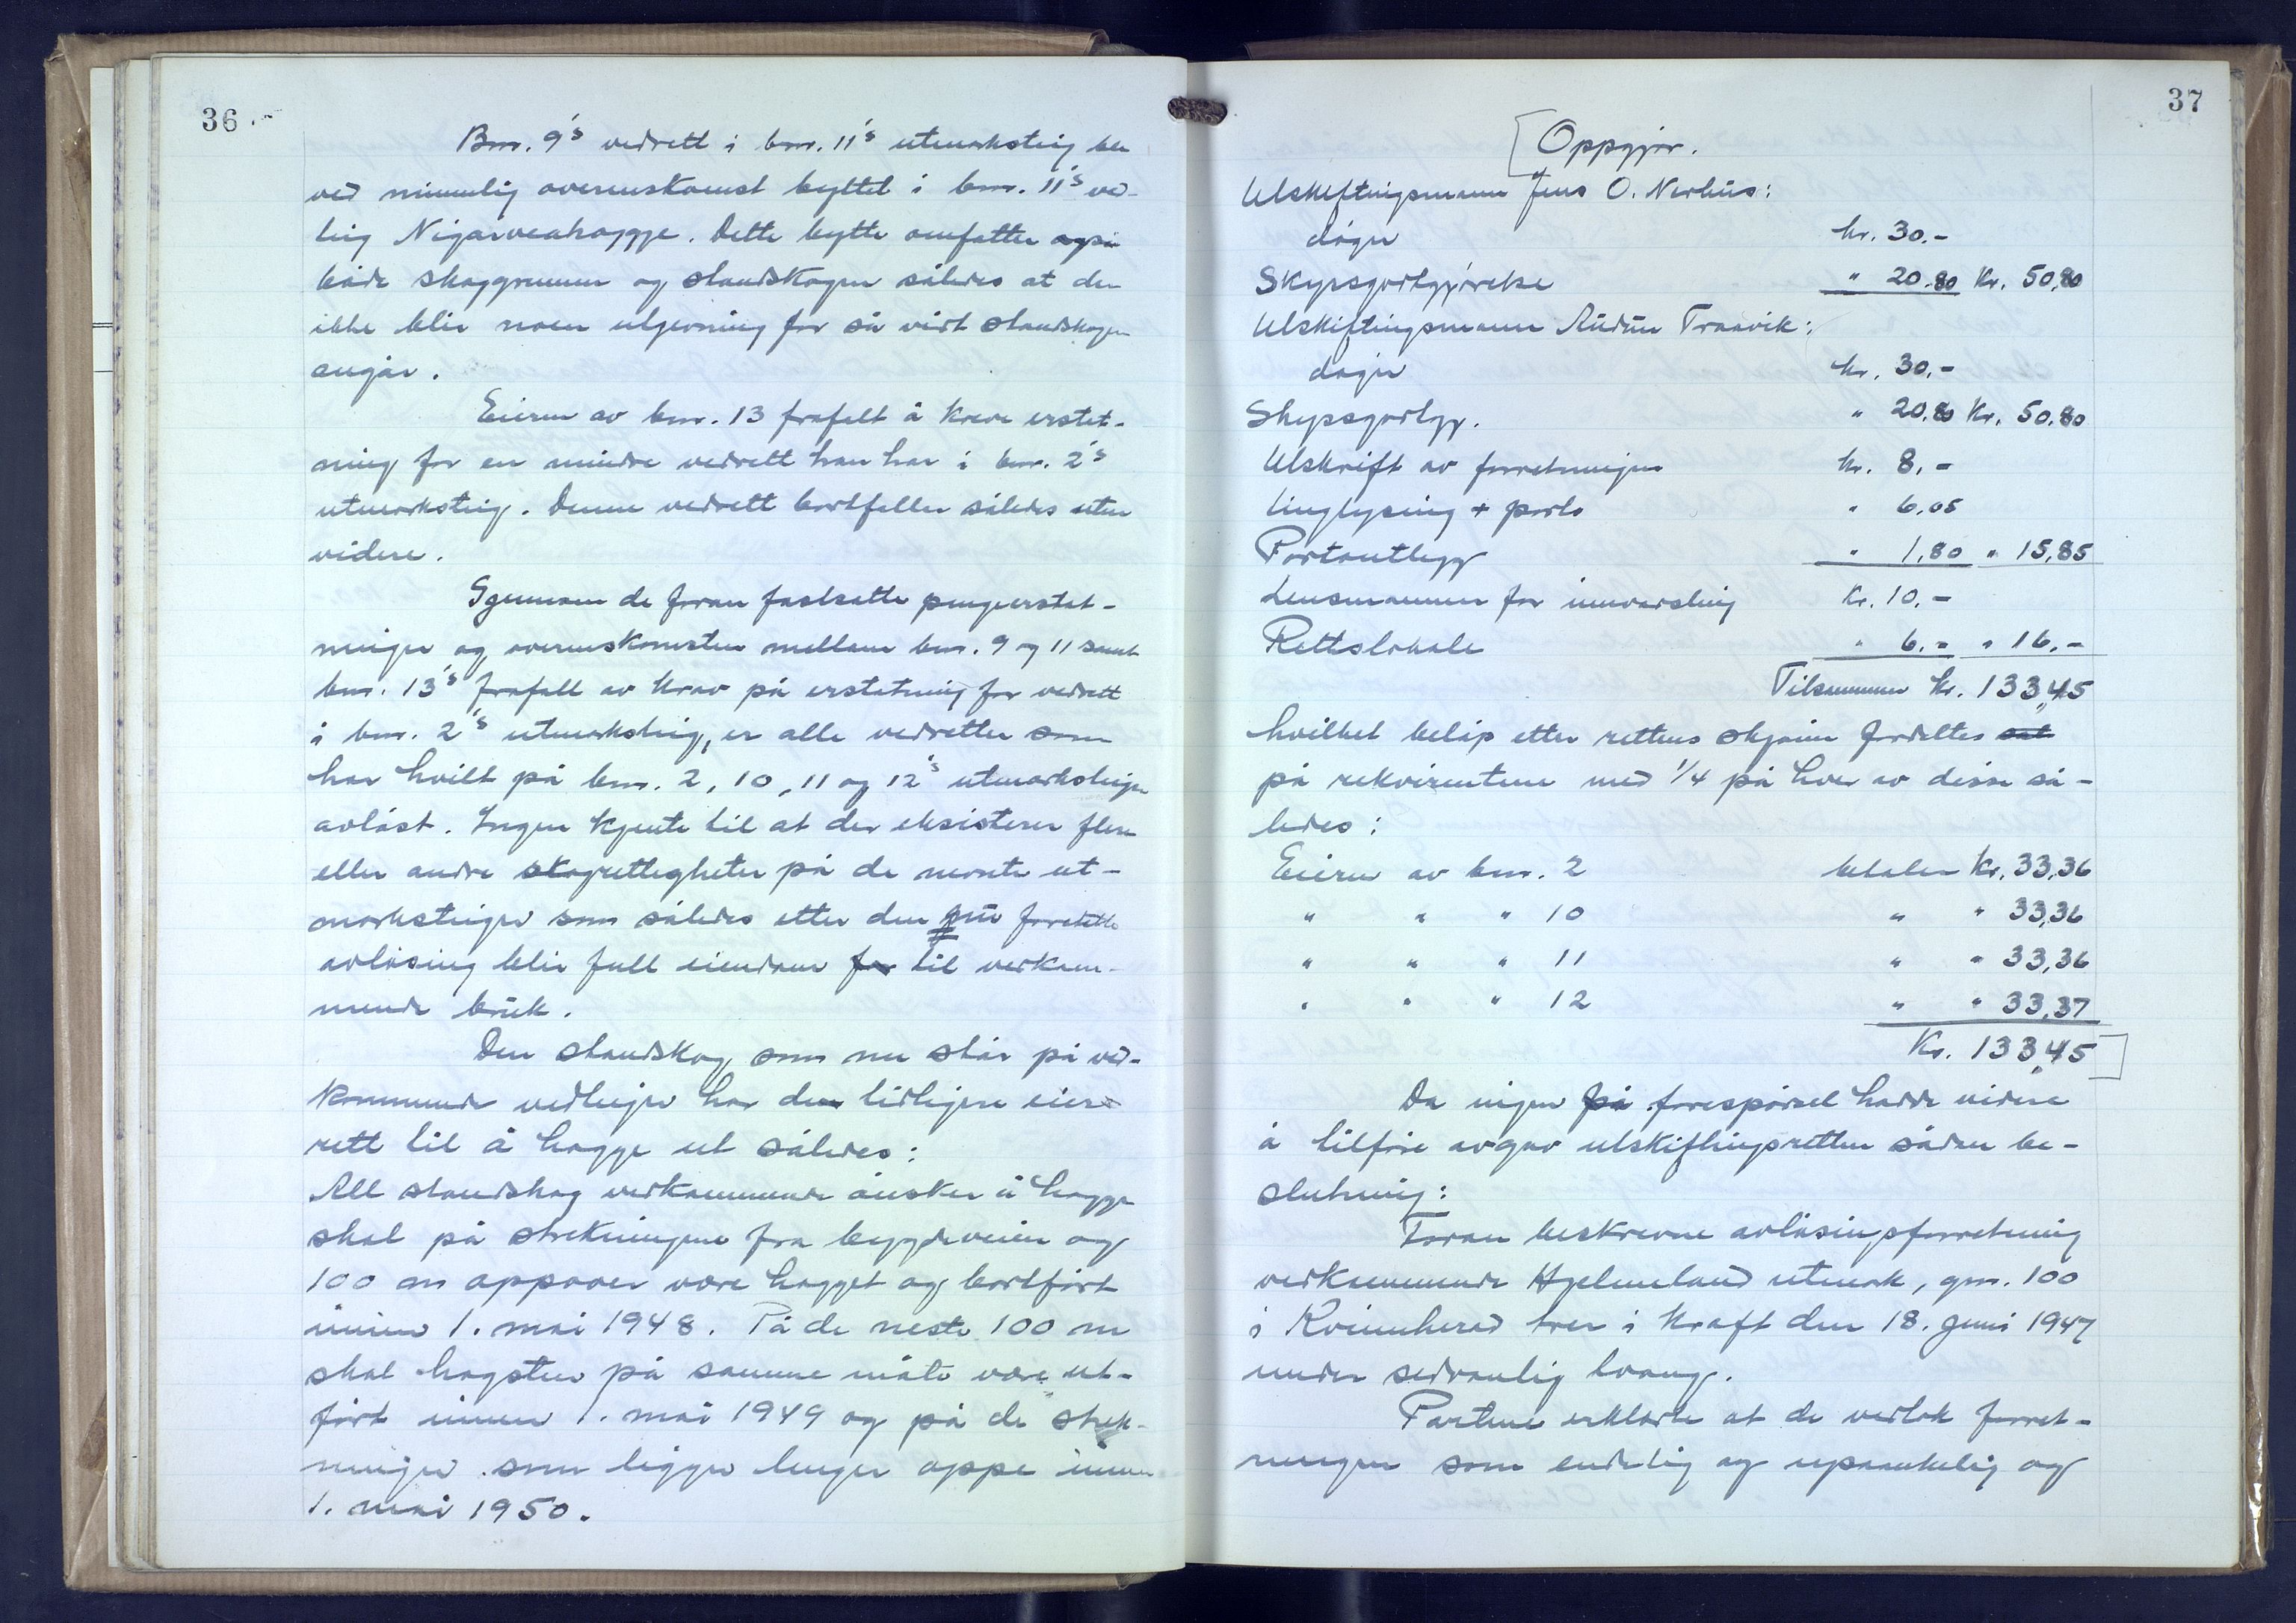 36
Bnr. 9's vedrett i bnr. 11's utmarksteig ble
ved minnelig overenskomst byttet i bnr. 11's ved-
teig Nigarveahagge. Dette bytte omfatter også
både skoggrunn og standskogen således at det
ikke blir noen utjevning for så vidt standskogen
angår.
Eieren av bnr. 13 frafalt å kreve erstat-
ning for en mindre vedrett han har i bnr. 2's
utmarksteig. Denne vedrett bortfaller således uten
videre.
Igjennom de foran fastsatte pengeerstat-
ninger og overenskomsten mellom bnr. 9 og 11 samt
bnr. 13's frafall av krav på erstatning for vedrett
i bnr. 2's utmarksteig, er alle vedretter som
har hvilt på bnr. 2, 10, 11 og 12's utmarksteiger
avløst. Ingen kjente til at der eksisterer flere
eller andre skogrettigheter på de nevnte ut-
marksteiger som således etter den nu foretatte
avløsing blir full eiendom for til vedkom-
mende bruk.
Den standskog som nu står på ved-
kommende vedteiger har den tidligere eier
rett til å hogge ut således:
All standskog vedkommende ønsker å hogge
skal på strekningene fra bygdeveien og
100 m oppover være hogget og bortført
innen 1. mai 1948. På de neste 100 m
skal hogsten på samme måte være ut-
ført innen 1. mai 1949 og på de strek-
ninger som ligger lenger oppe innen
1. mai 1950.
37
Oppgjør.
Utskiftingsmann Jens O. Nerhus:
dager kr. 30.-
Skyssgodtgjørelse " 20.80 Kr. 50,80
Utskiftingsmann Audun Traavik:
dager kr. 30.-
Skyssgodtgj. " 20.80 Kr. 50.80
Utskrift av forretningen kr. 8,-
Tinglysing + porto " 6,05
Portoutlegg " 1,80 " 15,85
Lensmannen for innvarsling Kr. 10.-
Rettslokale " 6.- " 16.-
Tilsammen kr. 133,45
hvilket beløp etter rettens skjønn fordeltes
på rekvirentene med 1/4 på hver av disse så-
ledes:
Eieren av bnr. 2 betaler Kr. 33,36
" " " 10 " " 33,36
" " " 11 " " 33,36
" " " 12 " " 33,37
Kr. 133,45
Da ingen på forespørsel hadde videre
å tilføie avgav utskiftingsretten sådan be-
slutning:
Foran beskrevne avløsingsforretning
vedkommende Hjelmeland utmark, gnr. 100
i Kvinnherad trer i kraft den 18. juni 1947
under sedvanlig tvang.
Partene erklærte at de vedtok forret-
ningen som endelig og upåankelig og